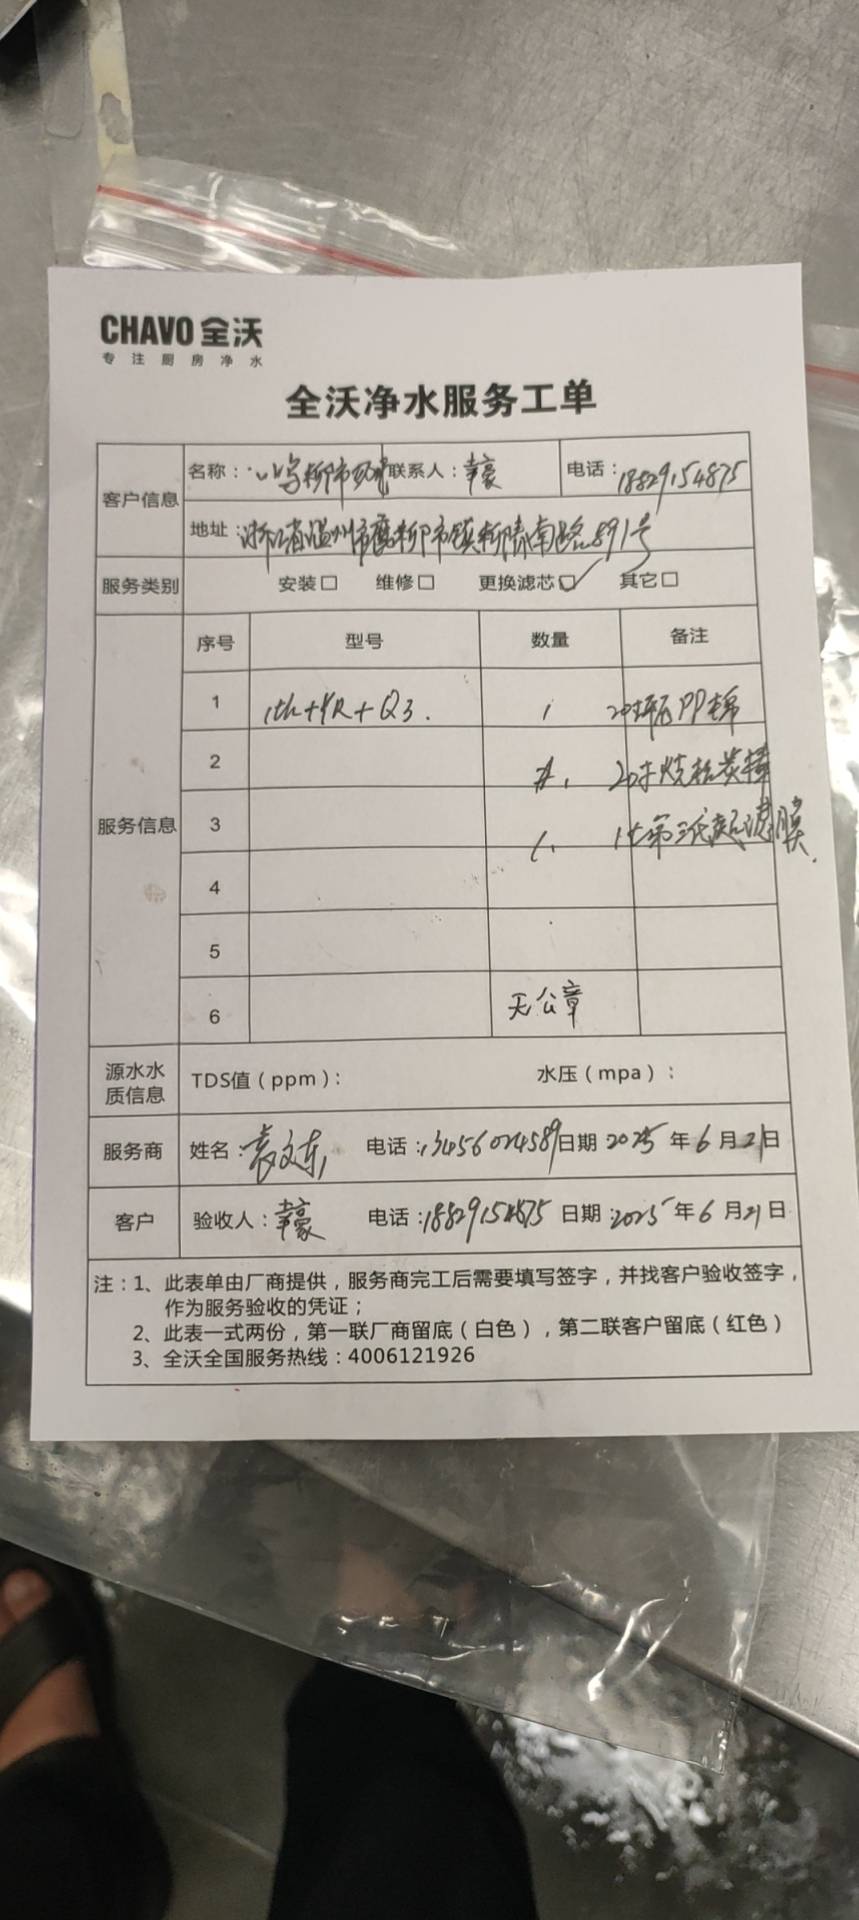 CHAVO 全沃
专注厨房净水
全沃净水服务工单
客户信息 名称： 联系人： 豪 电话：18829154875
地址：浙江省温州市 柳市镇柳青南路891号
服务类别 安装□ 维修□ 更换滤芯☑ 其它□
服务信息 序号 型号 数量 备注
1 +Q3. 1 PP棉
2 1. 20寸烧结炭棒
3 1. 超滤膜.
4
5
6 无公章
源水水质信息 TDS值（ppm）： 水压（mpa）：
服务商 姓名：袁文东 电话：13456024589 日期 2025 年 6 月 21 日
客户 验收人： 豪 电话：18829154875 日期：2025 年 6 月 21 日
注：1、此表单由厂商提供，服务商完工后需要填写签字，并找客户验收签字，
作为服务验收的凭证；
2、此表一式两份，第一联厂商留底（白色），第二联客户留底（红色）
3、全沃全国服务热线：4006121926